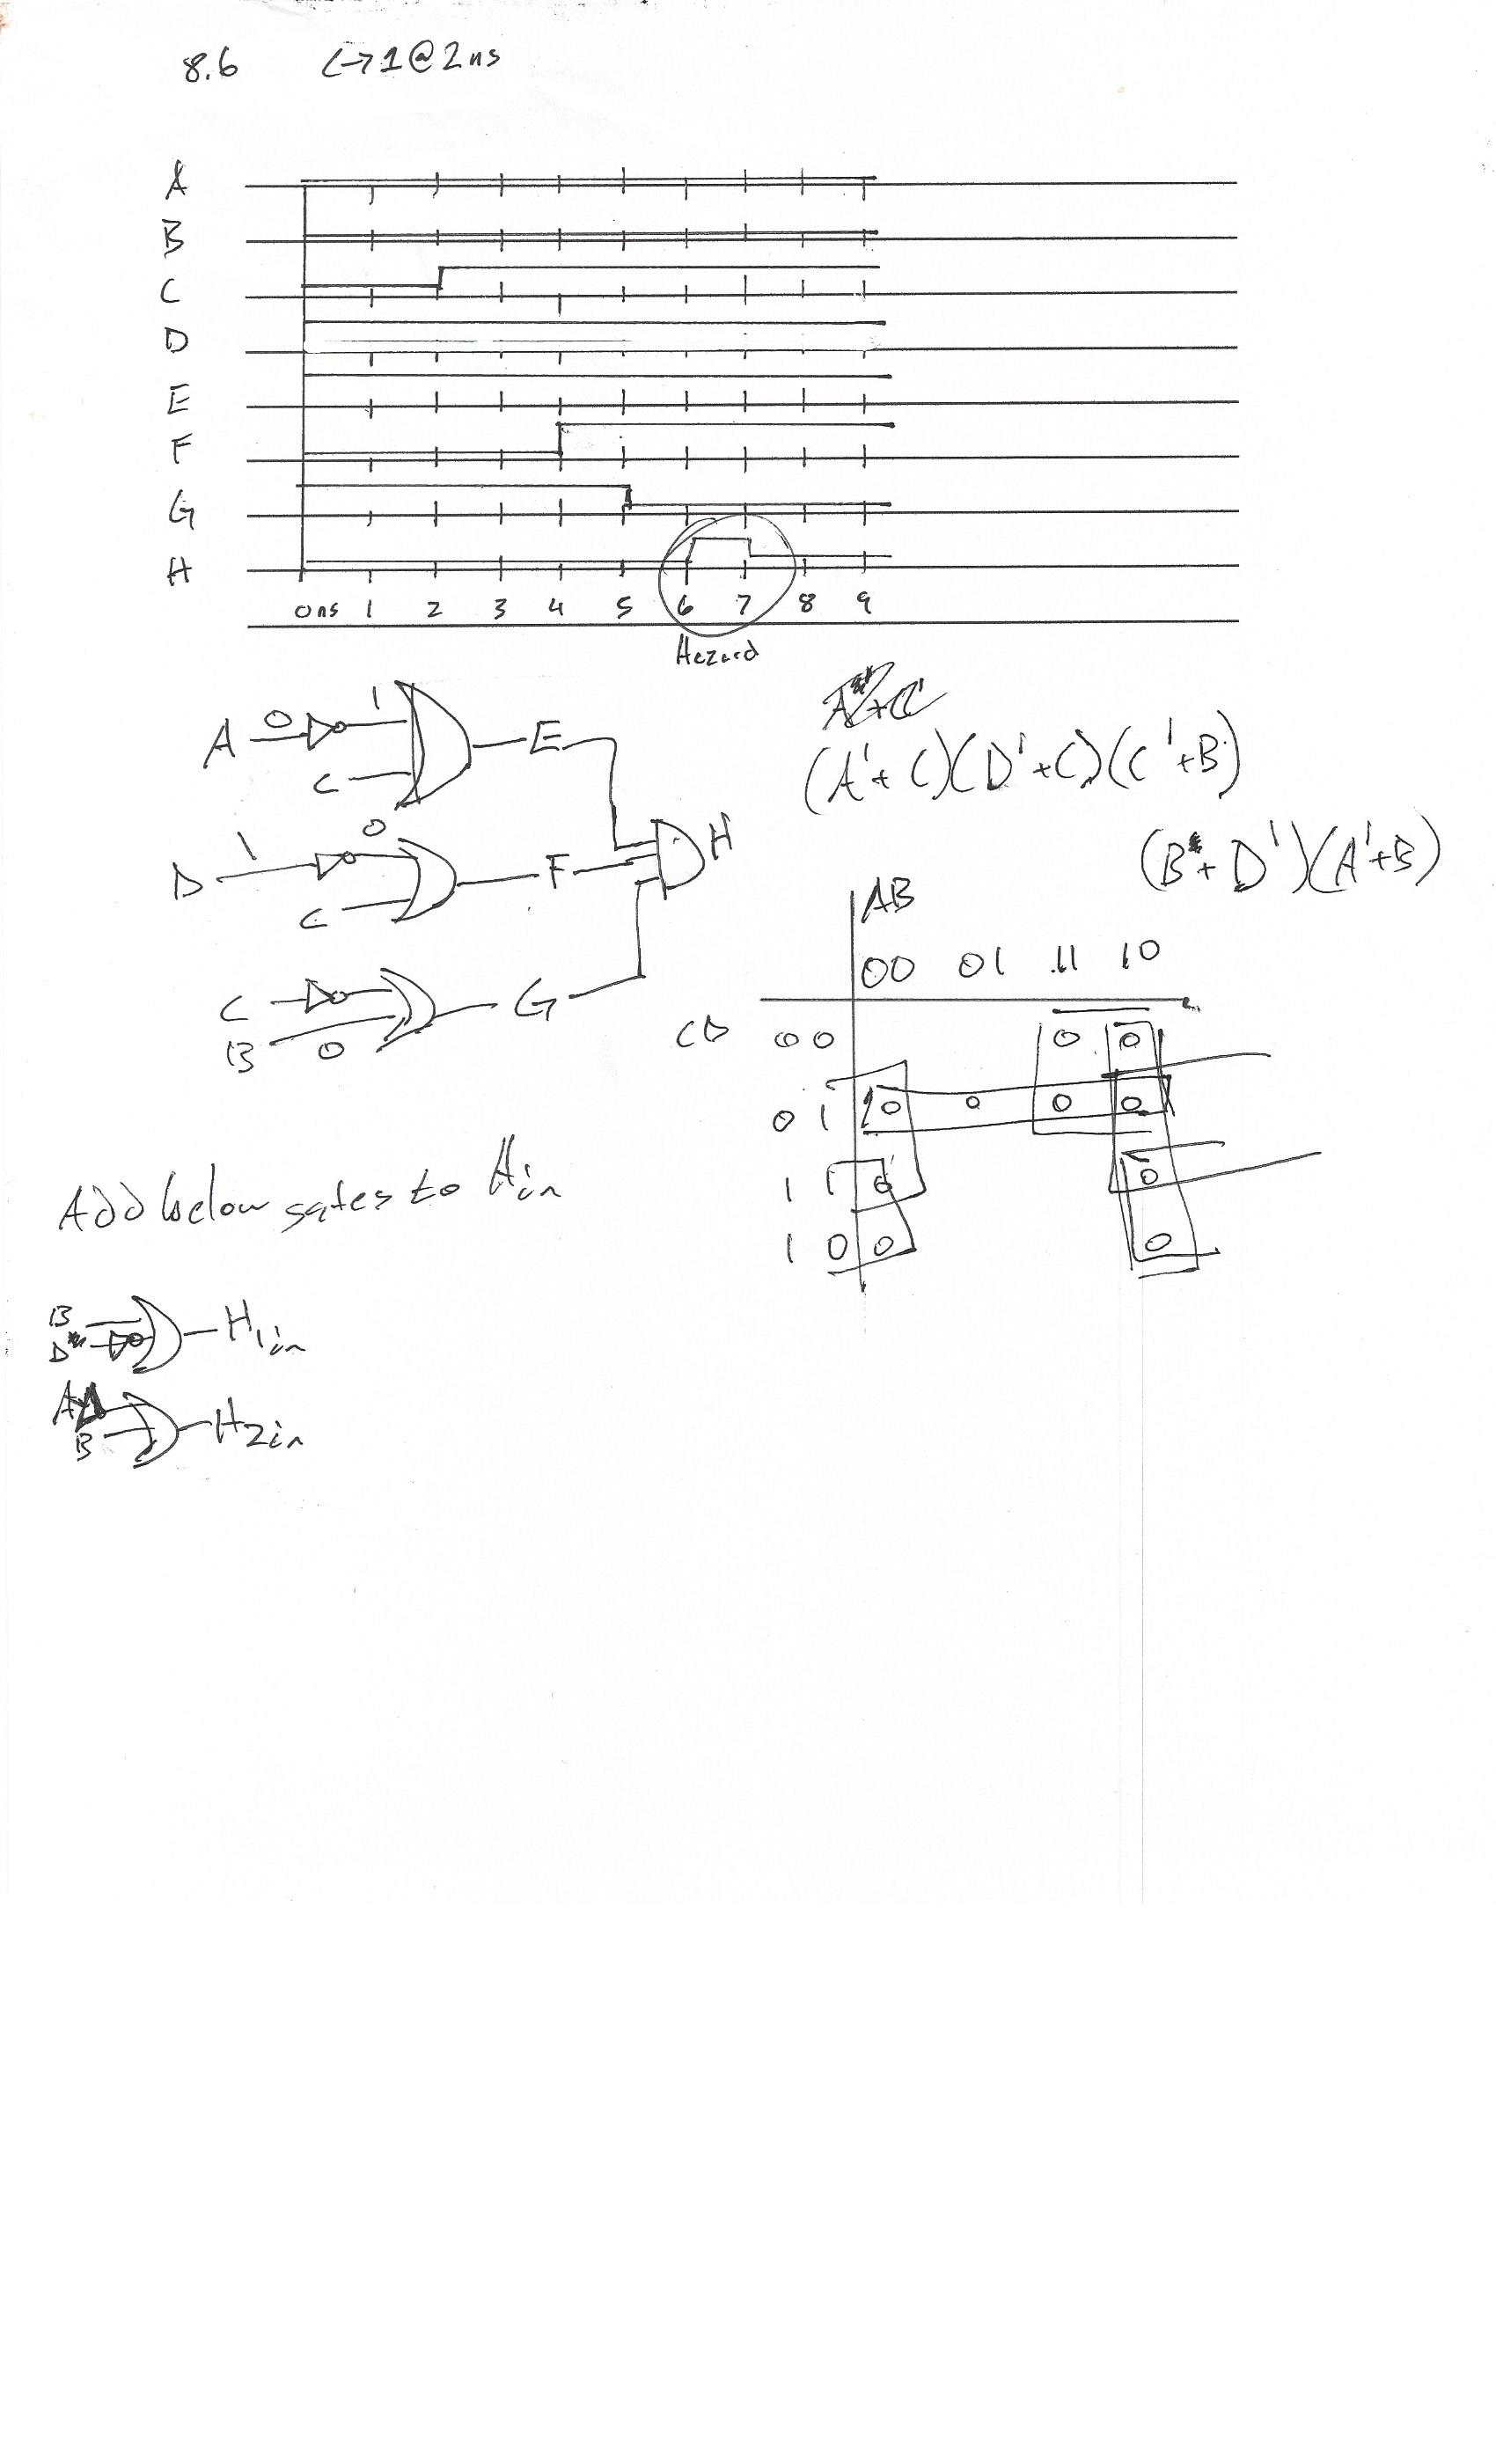 8.6 C→1@2ns
A
B
C
D
E
F
G
H
0ns 1 2 3 4 5 6 7 8 9
Hazard
A 0 1 E
C
D 1 0 F H
C
C G
B 0
(A'+C)(D'+C)(C'+B)
(B+D')(A'+B)
AB
00 01 11 10
CD 00 0 0
01 0 0 0 0
11 0 0
10 0 0
Add below gates to Hin
B
D H1in
A
B H2in